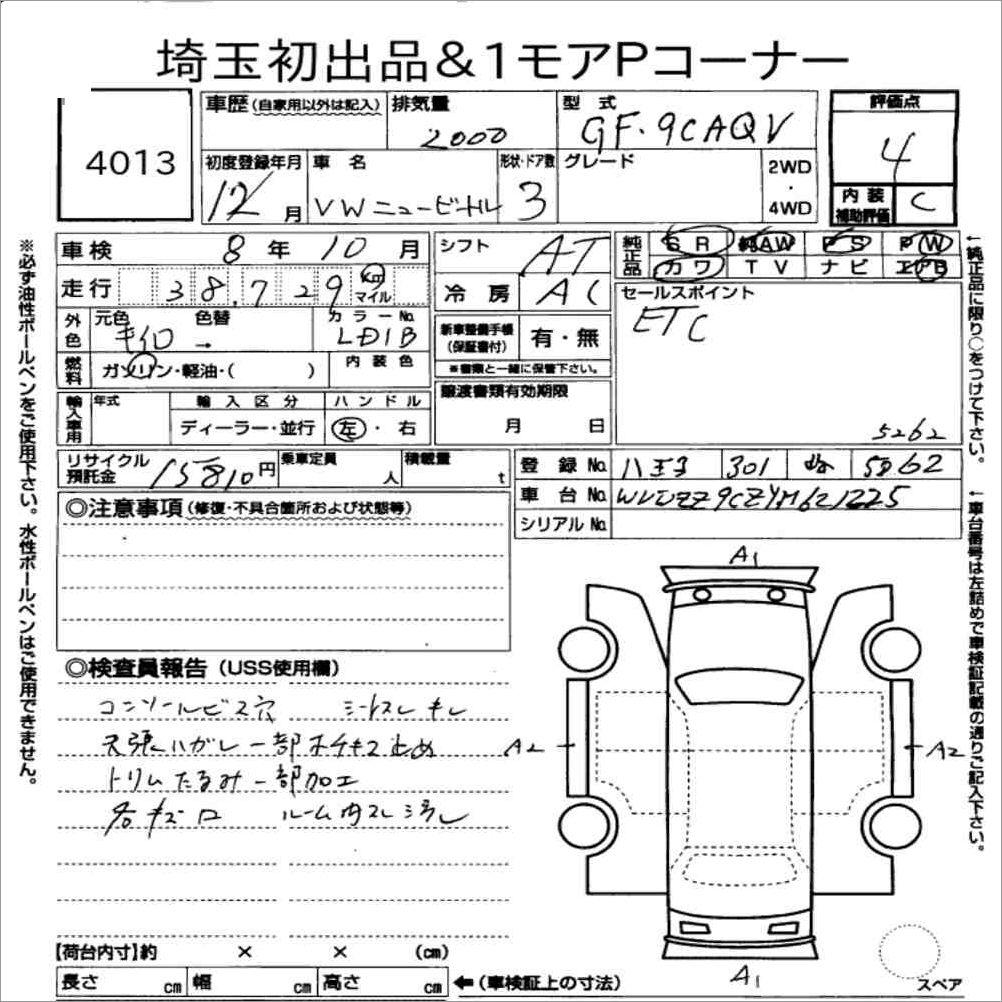 埼玉初出品&1モアPコーナー
4013
車歴(自家用以外は記入) 排気量 2000
型式 GF・9CAQV
評価点 4
初度登録年月 12月
車名 VWニュービートル
形状・ドア数 3
グレード
2WD・4WD
内装補助評価 C
車検 8年10月
シフト AT
純正品 SR 純AW PS PW
カワ TV ナビ エアB
走行 38,729 Km マイル
冷房 AC
セールスポイント
ETC
5262
外色 元色 キイロ → 色替 カラーNo. LD1B
新車整備手帳(保証書付) 有・無
※書類と一緒に保管下さい。
燃料 ガソリン・軽油・( ) 内装色
譲渡書類有効期限 月 日
輸入車用 年式 輸入区分 ディーラー・並行 ハンドル 左・右
リサイクル預託金 15810円 乗車定員 人 積載量 t
登録No. 八王子 301 5262
車台No. WVWZZZ9CZYM621225
シリアルNo.
◎注意事項(修復・不具合箇所および状態等)
◎検査員報告(USS使用欄)
コンソールビス穴 シートスレ キレ
天張ハガレ一部ホチキス止め
トリムたるみ一部加工
各キズ ルーム内スレ汚れ
A1
A2
A2
A1
スペア
【荷台内寸】約 × × (cm)
長さ cm 幅 cm 高さ cm ←(車検証上の寸法)
※必ず油性ボールペンをご使用下さい。水性ボールペンはご使用できません。
←純正品に限り○をつけて下さい。
←車台番号は左詰めで車検証記載の通りご記入下さい。